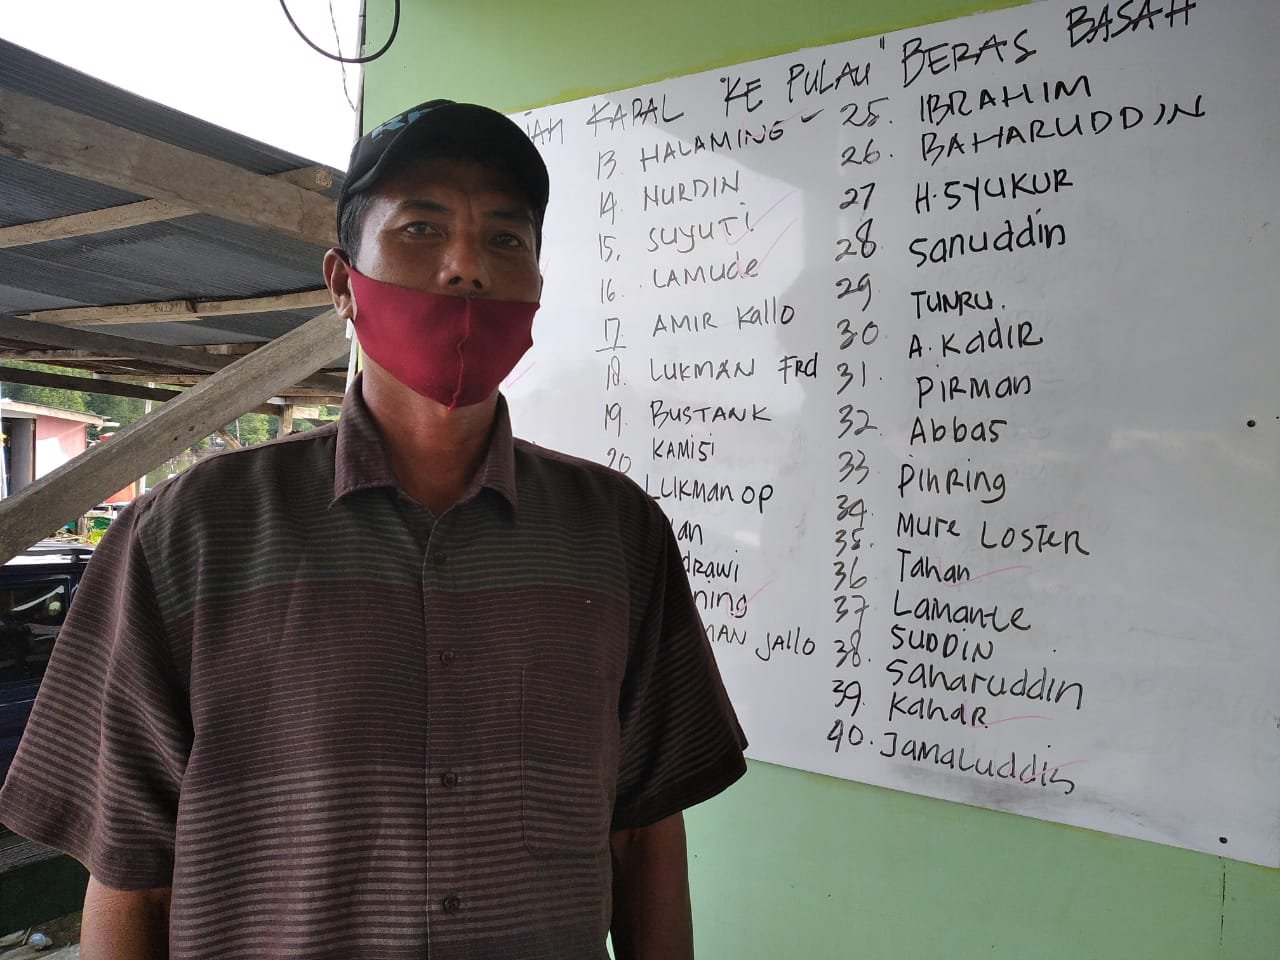 KAPAL "KE PULAU" BERAS BASAH
13. HALAMING
14. NURDIN
15. SUYUTi
16. LAMUde
17 AMIR Kallo
18. LUKMAN FRd
19 BUSTANK
20 KAMISI
LUKMAN OP
an
drawi
ning
MAN JALLO
25. IBRAHIM
26. BAHARUDDIN
27 H.SYUKUR
28 Sanuddin
29. TUNRU.
30 A.KadIR
31. PIRMAN
32. Abbas
33 PinRing
34. Mure LOSTEn
35. Tahan
36 Lamante
37. SUDDIN
38. Saharuddin
39. KahaR
40. Jamaluddin